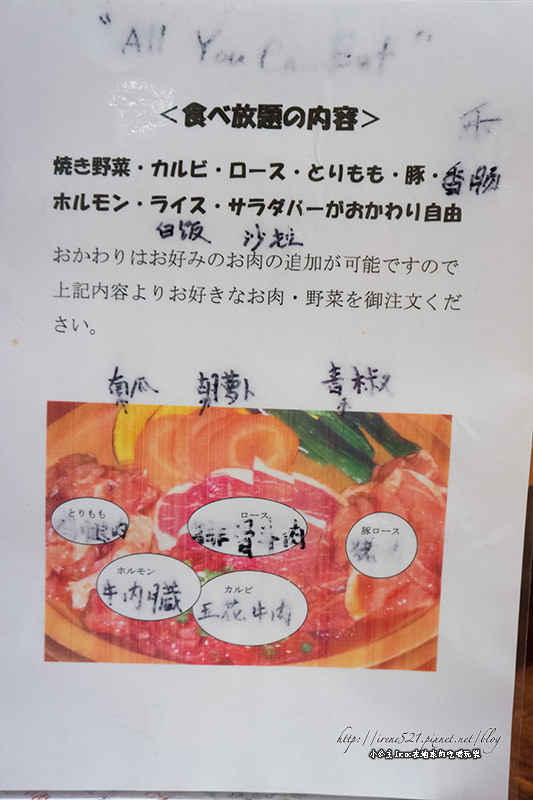 "All You Can Eat"
＜食べ放題の内容＞
焼き野菜・カルビ・ロース・とりもも・豚・香腸
ホルモン・ライス・サラダバーがおかわり自由
白飯 沙拉
おかわりはお好みのお肉の追加が可能ですので
上記内容よりお好きなお肉・野菜を御注文くだ
さい。
南瓜 胡蘿卜 青椒
とりもも
ロース
牛肉
豚ロース
豬
ホルモン
牛内臓
カルビ
五花牛肉
http://irene521.pixnet.net/blog